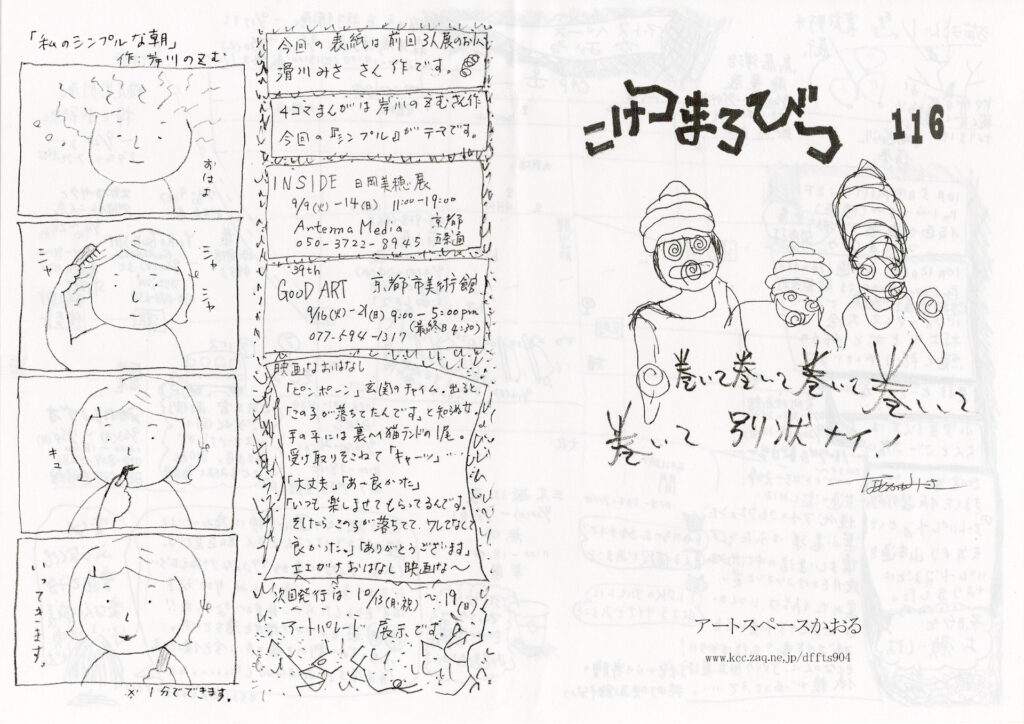 「私のシンプルな朝」
作:岸川のぞむ
おはよ
シャ
シャ
キュ
いってきます。
※1分でできます。
今回の表紙は前回3人展のお1人
滑川みさ さん作です。
4コマまんがは岸川のぞむさん作
今回の『シンプル』がテーマです。
INSIDE 日岡美穂展
9/9(火)-14(日) 11:00-19:00
Antenna Media 京都
050-3722-8945 五条通
39th
GOOD ART 京都市美術館
9/16(火)-21(日) 9:00-5:00pm
(最終日4:30)
077-594-1317
映画なおはなし
「ピンポーン」玄関のチャイム。出ると、
「この子が落ちてたんです。」と知らぬ女
手の平には裏への猫ランドの1尾。
受け取りそこねて「キャーッ」…
「大丈夫」「あー良かった」
「いつも楽しませてもらってるんです。
そしたらこの子が落ちてて、ワレてなくて
良かった。」「ありがとうございます」
次回発行は 10/13(月・祝)~19(日)
アートパレード展示です。
こけつまろびつ 116
巻いて巻いて巻いて巻いて
巻いて 別状ナイン
アートスペースかおる
www.kcc.zaq.ne.jp/dffts904